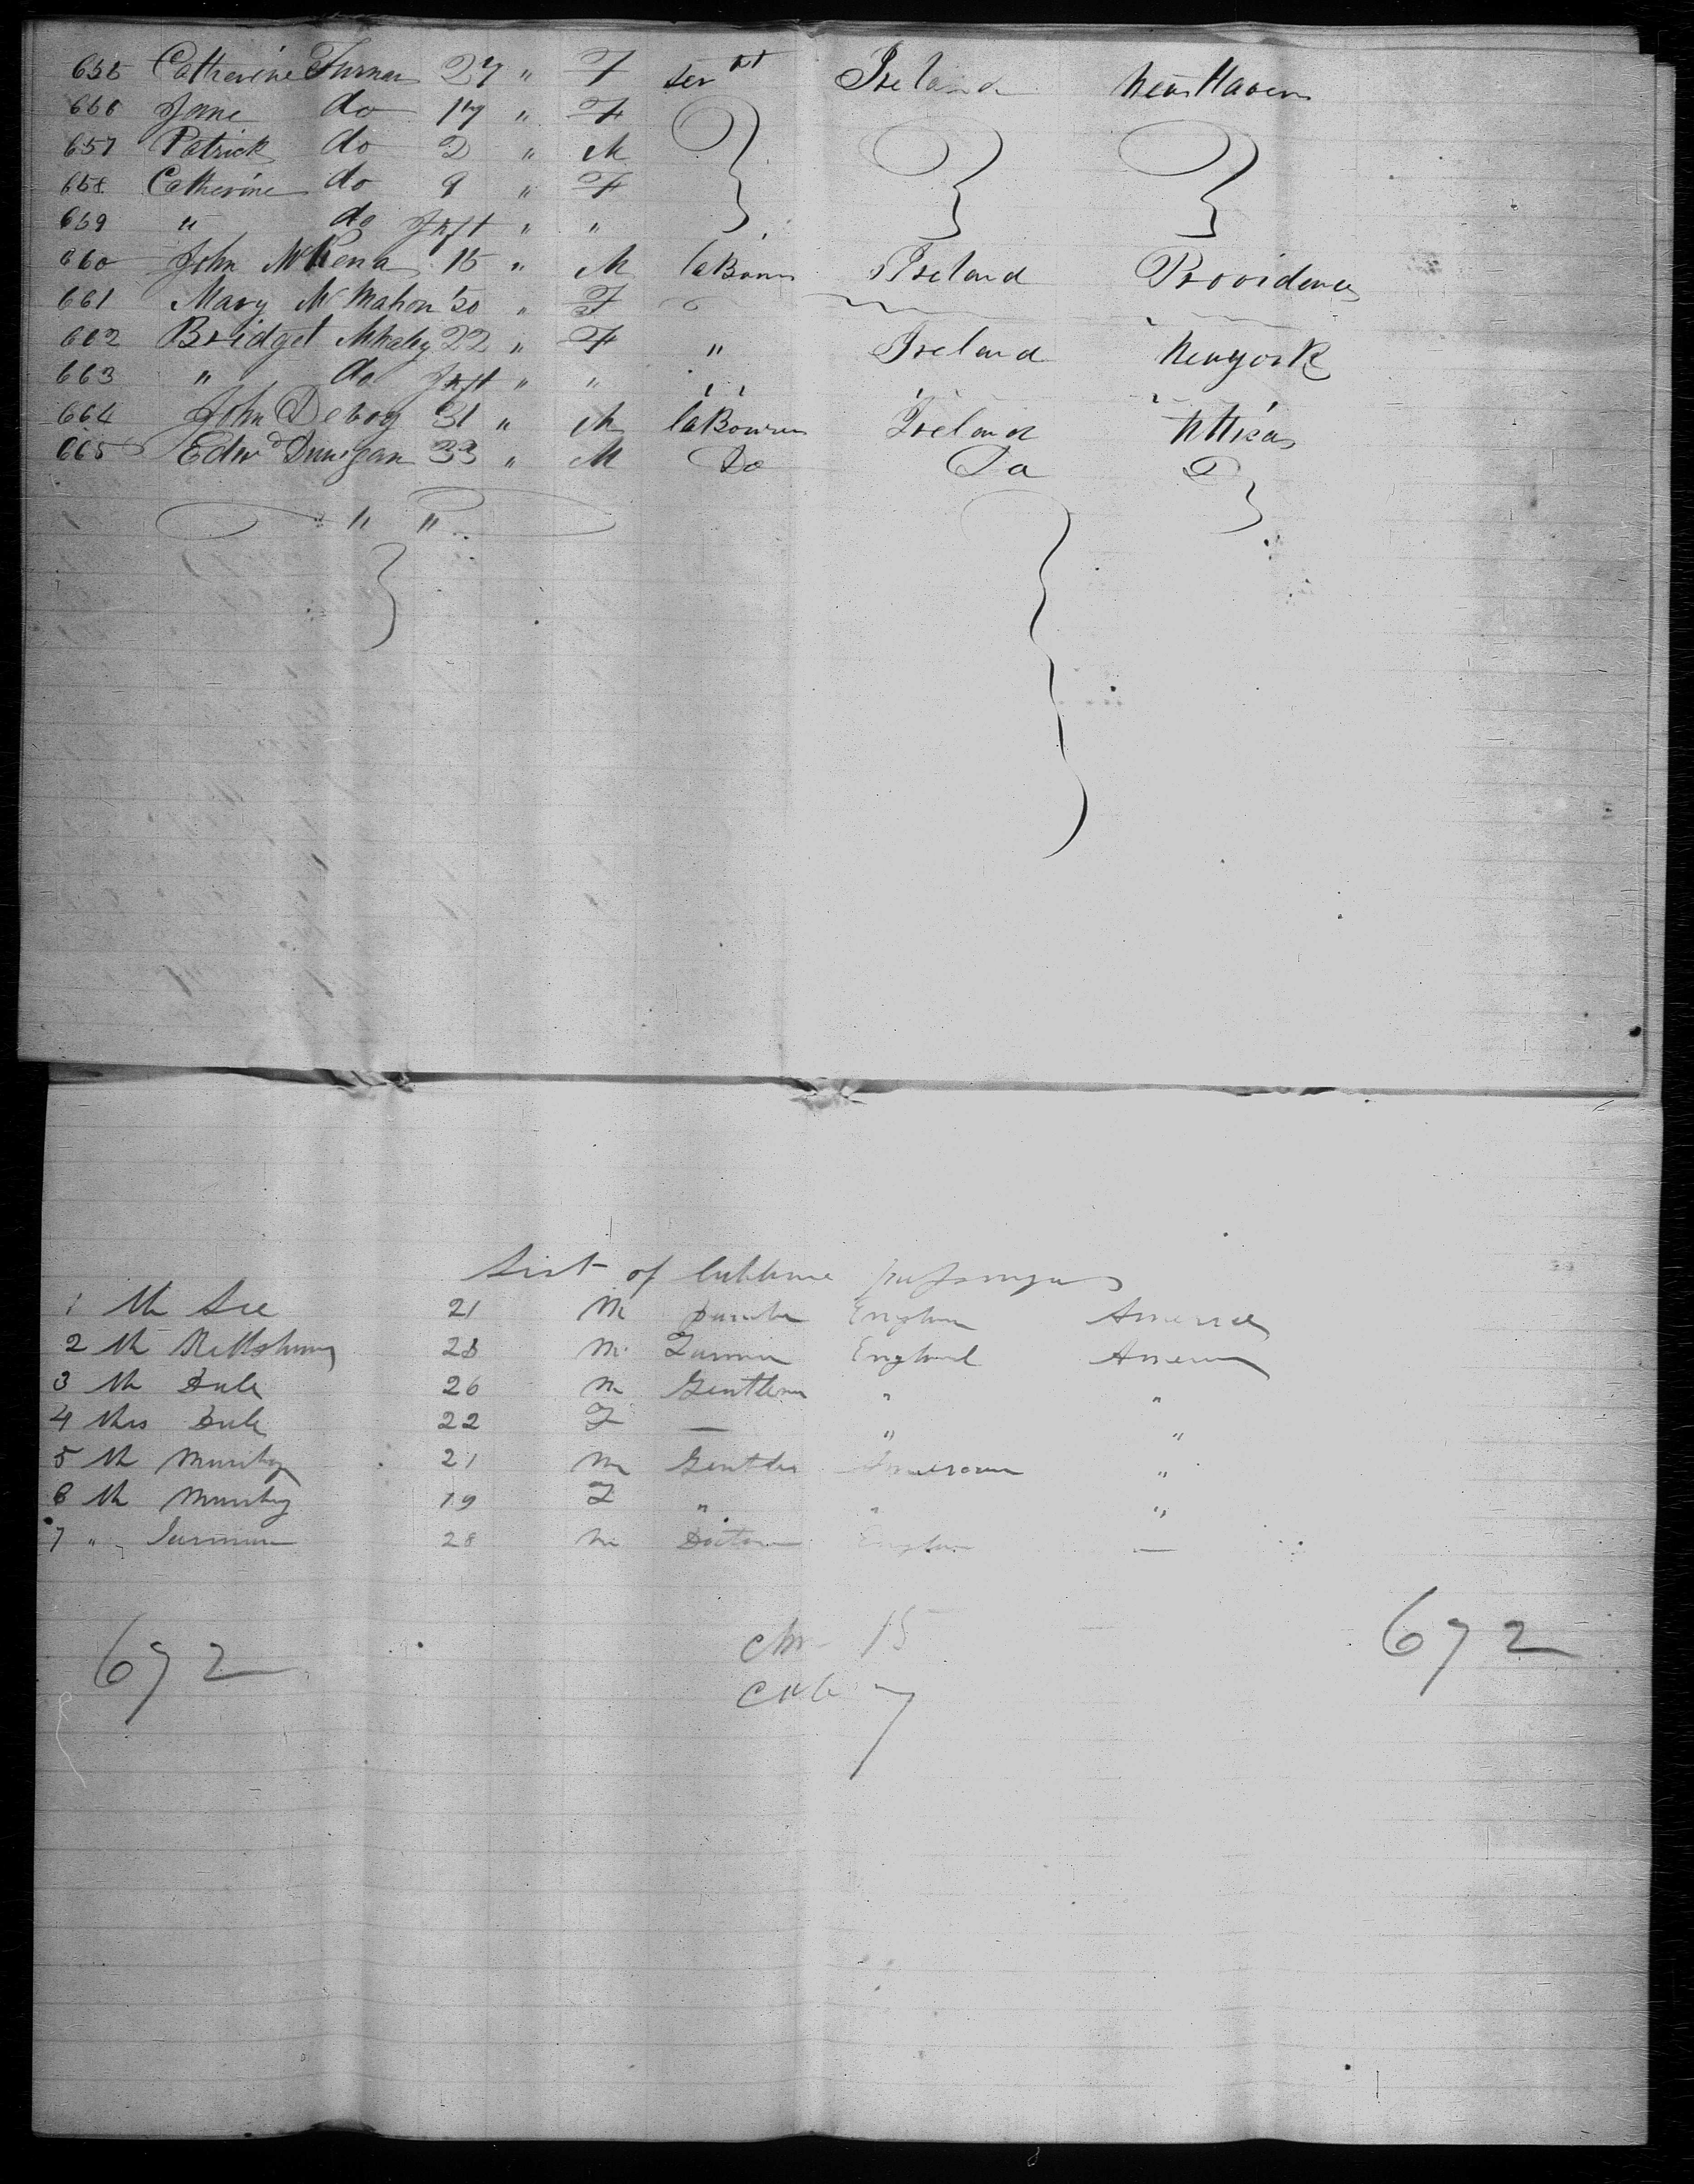 655 Catherine Turner 27 " F Servt Ireland New Haven
656 Jane do 17 " F
657 Patrick do 2 " M
658 Catherine do 9 " F
659 " do Inft " "
660 John McKena 15 " M laBourer Ireland Providence
661 Mary McMahon 50 " F
662 Bridget 22 " F " Ireland Newyork
663 " do Inft " "
664 John Devoy 31 " M laBourer Ireland
665 Edwd Dunigan 33 " M Do Do
" "
List of passengers
1 Mr 21 M England America
2 Mr 23 M Farmer England America
3 Mr Dule 26 M Gentleman " "
4 Mrs Dule 22 F — " "
5 Mr 21 M Gentle "
6 19 F " " "
7 " 28 M Doctor England —
672 15 672
7